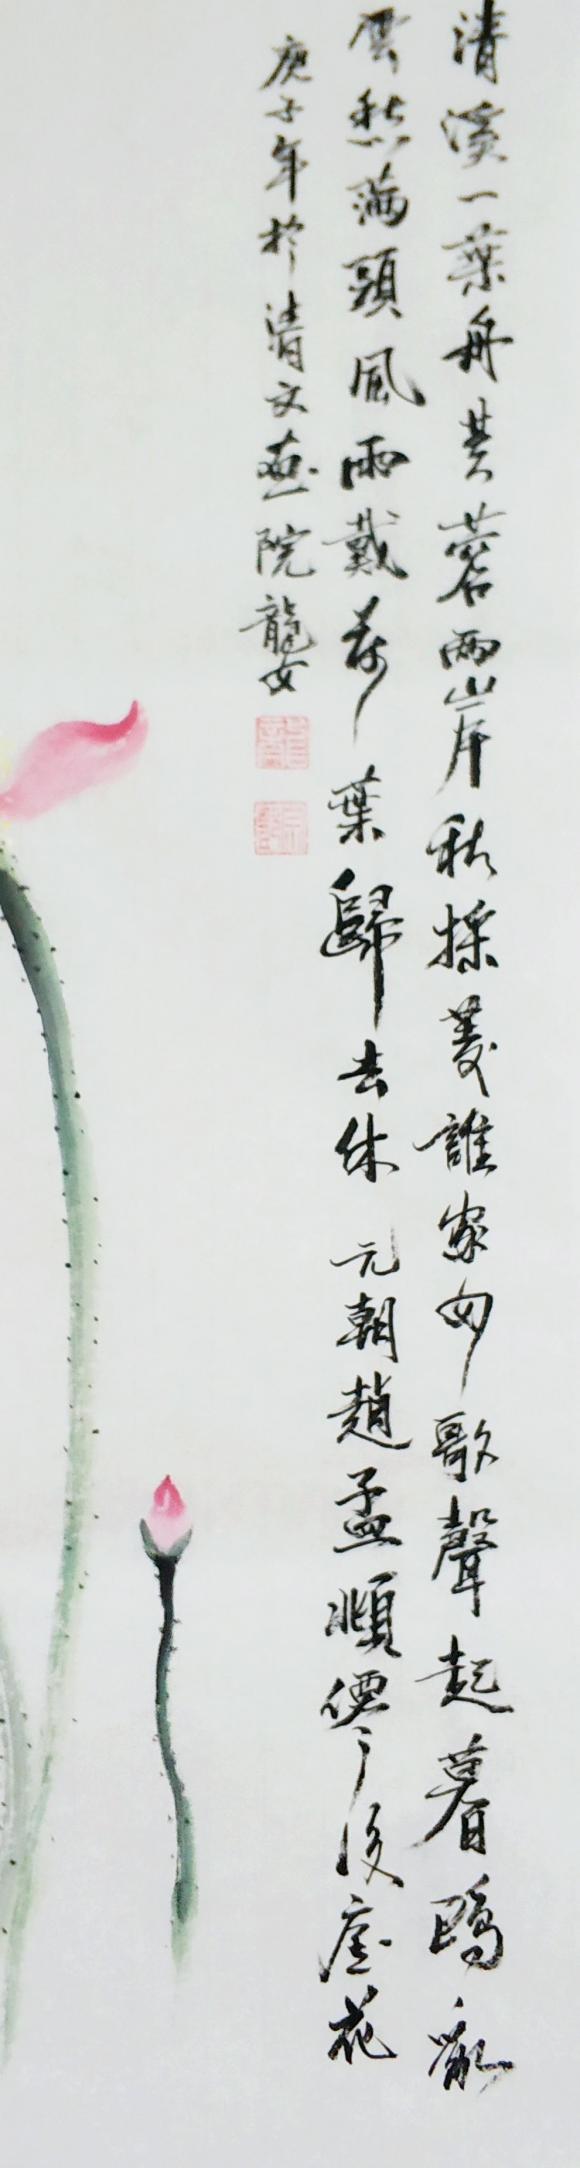 清溪一葉舟芙蓉兩岸秋採菱誰家女歌聲起暮鷗亂
雲愁滿頭風雨戴荷葉歸去休 元朝趙孟頫僊後庭花
庚子年於清文畫院龍女